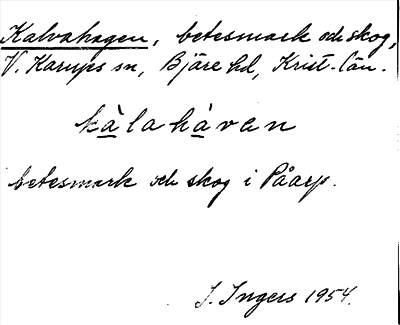 Kalvahagen, betesmark och skog,
V. Karups sn, Bjäre hd, Krist. län.
kàlahàvan
betesmark och skog i Påarp.
I. Ingers 1954.